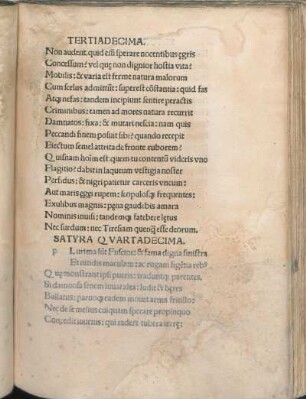 TERTIADECIMA.
Non audent. quid eni sperare nocentibus egris
Concessum? vel quę non dignior hostia vita?
Mobilis: & varia est ferme natura malorum
Cum scelus admittũt: superest cõstantia: quid fas
Atq; nefas: tandem incipiunt sentire peractis
Criminibus: tamen ad mores natura recurrit
Damnatos: fixa: & mutari nescia: nam quis
Peccandi finem posuit sibi? quando recepit
Eiectum semel attrita de fronte ruborem?
Quisnam hoĩm est quem tu contentũ videris vno
Flagitio? dabit in laqueum vestigia noster
Perfidus: & nigri patietur carceris vncum:
Aut maris ęgei rupem: scopulosq; frequentes:
Exulibus magnis: pęna gaudibis amara
Nominis inuisi: tandemq; fatebere lętus
Nec surdum: nec Tiresiam quenq; esse deorum,
SATYRA QVARTADECIMA.
P Lurima sũt Fuscine: & fama digna sinistra
Et nitidis maculam
Quę monstrant ipsi pueris: traduntq; parentes,
Si damnosa senem iuuat alea: ludit & hęres
Bullatus: paruoq; eadem mouet arma
Nec de se melius cuiquam sperare propinquo
Concedit iuuenis: qui radere tubera terrę: